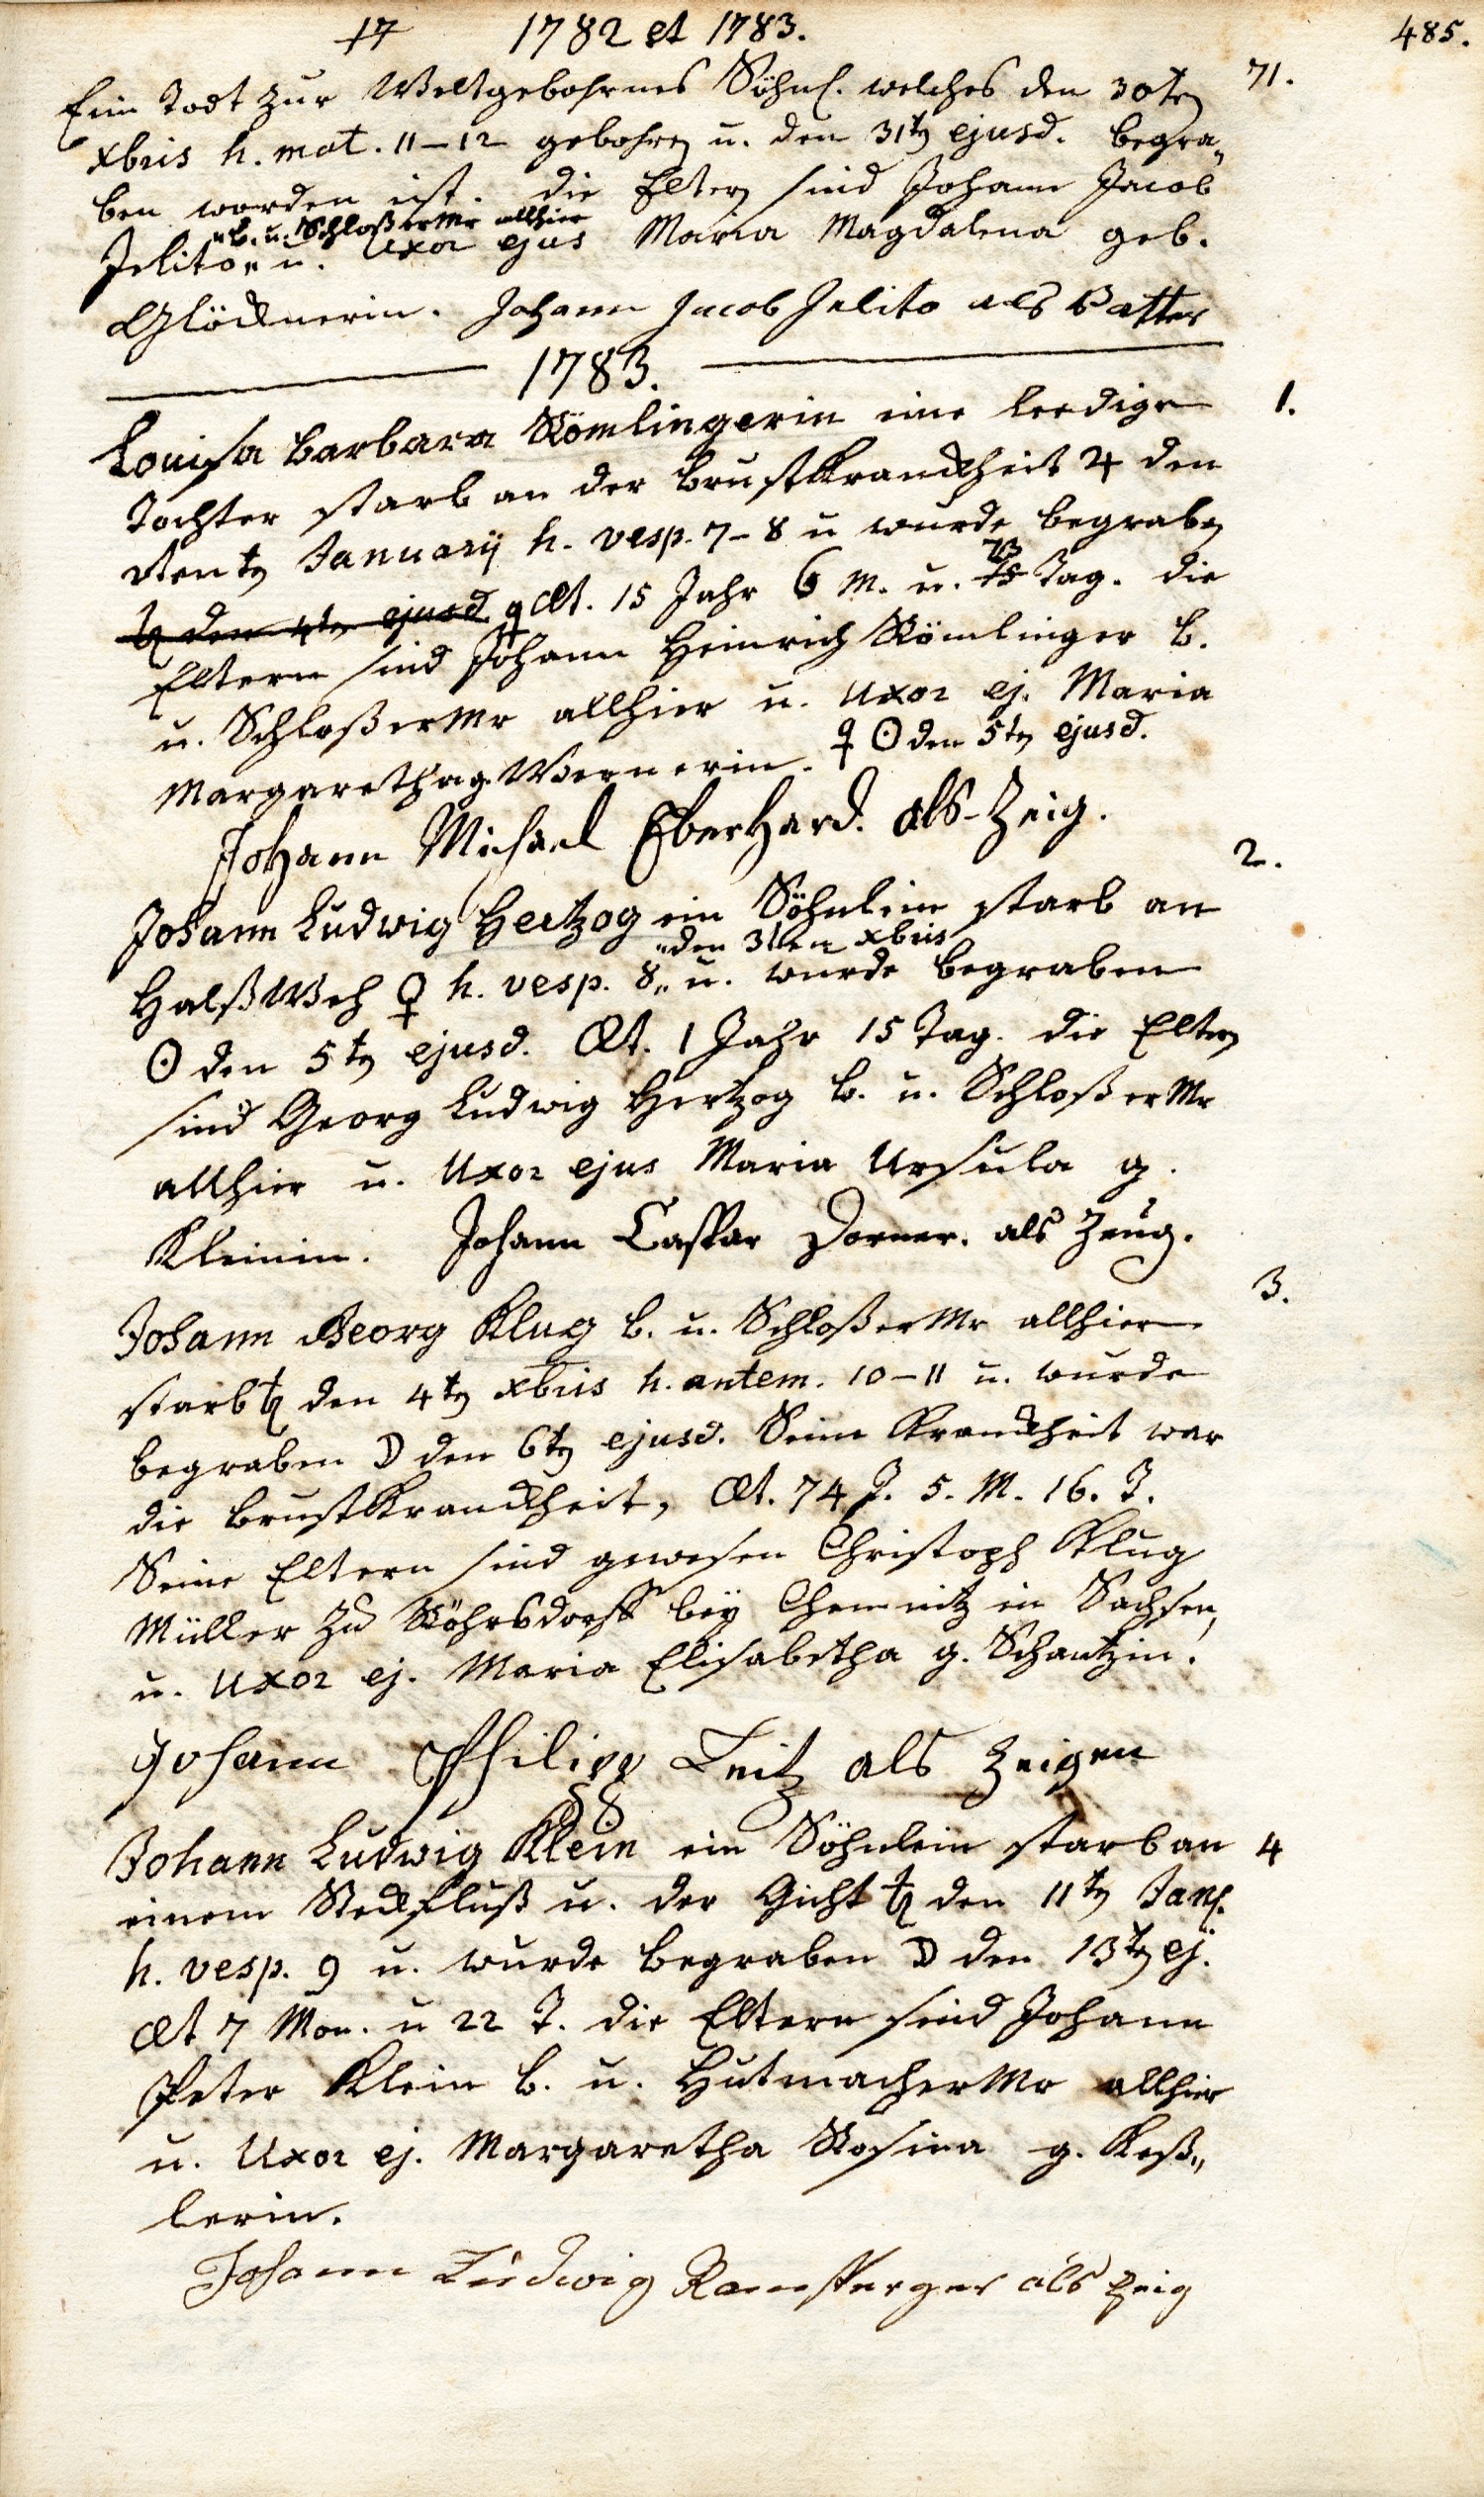 17 1782 et 1783. 485.
Ein Todt zur Weltgebohrnes Söhnl. welches den 30ten 71.
Xbris h. mat. 11–12 gebohren u. den 31ten ejusd. begra„
ben worden ist. die Eltern sind Johann Jacob
„b. u. SchloßerMr allhier
Jelito „ u. Uxor ejus Maria Magdalena geb.
Glöcknerin. Johann Jacob Jelito als Vatter
1783.
Louisa Barbara Römlingerin eine leedige 1.
Tochter starb an der Brustkranckheit ♃ den
ten January h. vesp. 7–8 u wurde begraben
♄ den 4ten ejusd. ♀ Æt. 15 Jahr 6 M. u. 23 Tag. die
Eltern sind Johann Heinrich Römlinger b.
u. SchloßerMr allhier u. Uxor ej. Maria
Margaretha g. Wernerin. ♀ ☉ den 5ten ejusd.
Johann Michael Eberhard. als Zeig.
2.
Johann Ludwig Hertzog ein Söhnlein starb an
„den 3ten Xbris
HalßWeh ♀ h. vesp. 8„ u. wurde begraben
☉ den 5ten ejusd. Æt. 1 Jahr 15 Tag. die Eltern
sind Georg Ludwig Hertzog b. u. SchloßerMr
allhier u. Uxor ejus Maria Ursula g.
Kleinin. Johann Caspar Dorner. als Zeug.
3.
Johann Georg Klug b. u. SchloßerMr allhier
starb ♄ den 4ten Xbris h. antem. 10–11 u. wurde
begraben ☽ den 6ten ejusd. Seine Kranckheit war
die Brustkranckheit, Æt. 74 J. 5. M. 16. T.
Seine Eltern sind gewesen Christoph Klug
Müller zu Röhrsdorff bey Chemnitz in Sachsen,
u. Uxor ej. Maria Elisabetha g. Schantzin.
Johann Philipp Leitz als Zeigen
Johann Ludwig Klein ein Söhnlein starb an 4
einem Steckfluß u. der Gicht ♄ den 11ten Janl.
h. vesp. 9 u. wurde begraben ☽ den 13ten ej.
Æt 7 Mon. u 22 T. die Eltern sind Johann
Peter Klein b. u. HutmacherMr allhier
u. Uxor ej. Margaretha Rosina g. Keß„
lerin.
Johann Ludwig Ramsperger als Zeig